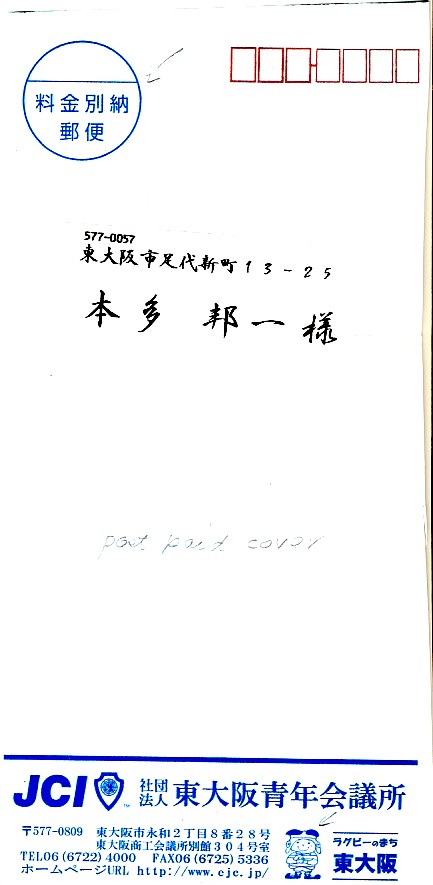 料金別納
郵便
577-0057
東大阪市足代新町13-25
本多 邦一様
post paid cover
JCI 社団法人 東大阪青年会議所
〒577-0809 東大阪市永和2丁目8番28号
東大阪商工会議所別館304号室
TEL06(6722)4000 FAX06(6725)5336
ホームページURL http://www.ejc.jp/
ラグビーのまち
東大阪